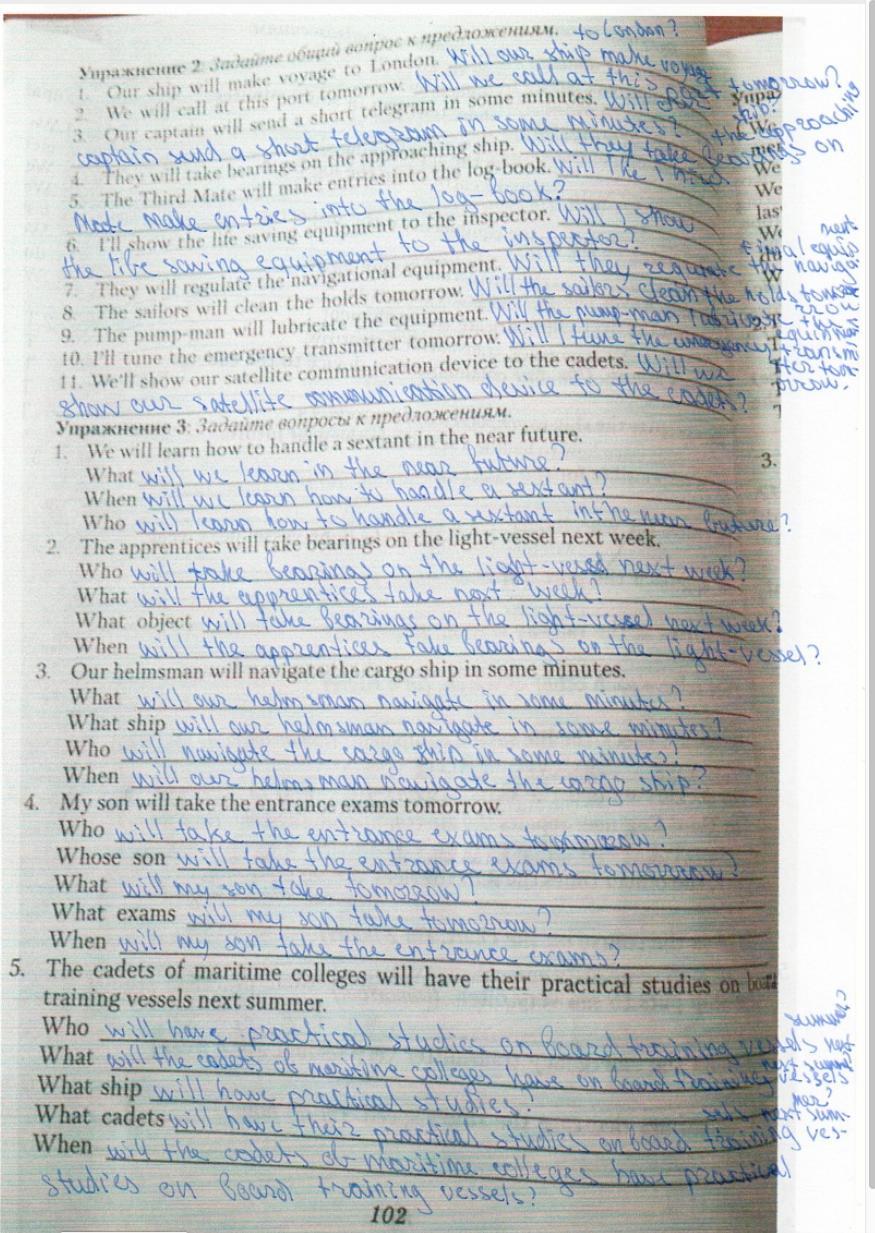 to London?
Упражнение 2. Задайте общий вопрос к предложениям.
1. Our ship will make voyage to London. Will our ship make voyage
2. We will call at this port tomorrow. Will we call at this port tomorrow?
3. Our captain will send a short telegram in some minutes. Will our
captain send a short telegram in some minutes?
ship?
4. They will take bearings on the approaching ship. Will they take bearings on the approaching
5. The Third Mate will make entries into the log-book. Will the Third
Mate make entries into the log-book?
6. I'll show the life saving equipment to the inspector. Will I show
the life saving equipment to the inspector?
7. They will regulate the navigational equipment. Will they regulate the naviga-
tional equip
ment
8. The sailors will clean the holds tomorrow. Will the sailors clean the holds tomorrow
9. The pump-man will lubricate the equipment. Will the pump-man lubricate the
equipment
10. I'll tune the emergency transmitter tomorrow. Will I tune the emergency transmi
tter tom-
orrow.
11. We'll show our satellite communication device to the cadets. Will we
show our satellite communication device to the cadets?
Упражнение 3: Задайте вопросы к предложениям.
1. We will learn how to handle a sextant in the near future.
What will we learn in the near future?
When will we learn how to handle a sextant?
Who will learn how to handle a sextant in the near future?
2. The apprentices will take bearings on the light-vessel next week.
Who will take bearings on the light-vessel next week?
What will the apprentices take next week?
What object will take bearings on the light-vessel next week?
When will the apprentices take bearings on the light-vessel?
3. Our helmsman will navigate the cargo ship in some minutes.
What will our helmsman navigate in some minutes?
What ship will our helmsman navigate in some minutes?
Who will navigate the cargo ship in some minutes?
When will our helmsman navigate the cargo ship?
4. My son will take the entrance exams tomorrow.
Who will take the entrance exams tomorrow?
Whose son will take the entrance exams tomorrow?
What will my son take tomorrow?
What exams will my son take tomorrow?
When will my son take the entrance exams?
5. The cadets of maritime colleges will have their practical studies on board
training vessels next summer.
Who will have practical studies on board training vessels next
summer?
What will the cadets of maritime colleges have on board training vessels
next summer
What ship will have practical studies?
What cadets will have their practical studies on board training ves-
sels next sum-
mer?
When will the cadets of maritime colleges have practical
studies on board training vessels?
102
Упра
We
We
We
las
3.